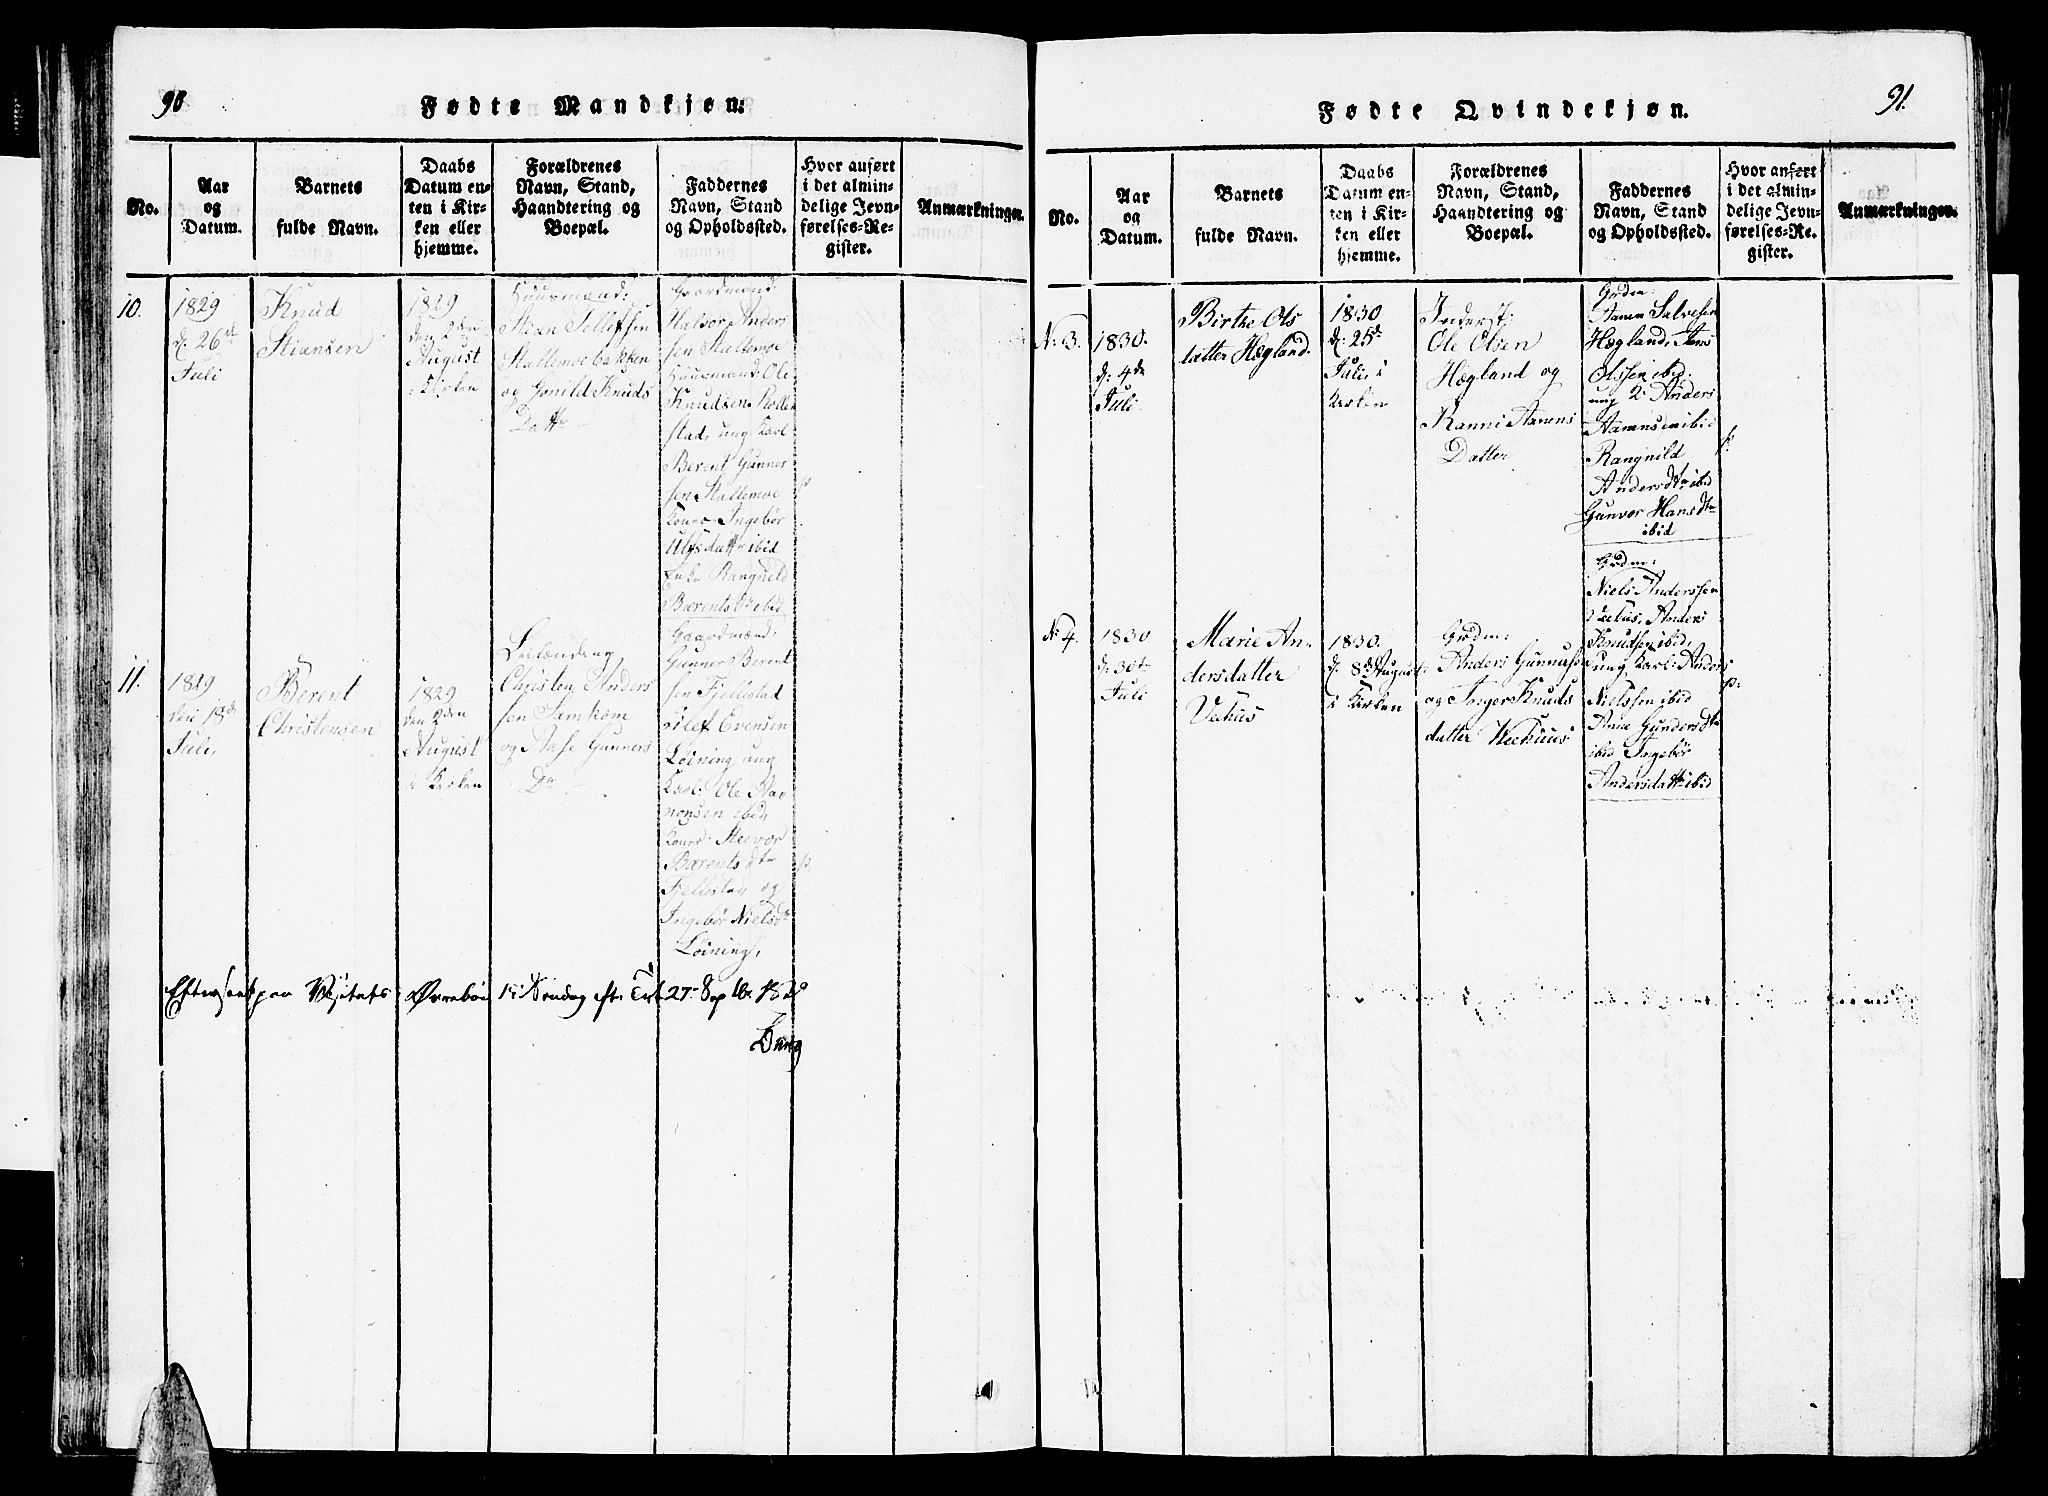 90
Fødte Mandkjøn.
No.
Aar
og
Datum.
Barnets
fulde Navn.
Daabs
Datum en-
ten i Kir-
ken eller
hjemme.
Forældrenes
Navn, Stand,
Haandtering og
Boepæl.
Faddernes
Navn, Stand
og Opholdssted.
Hvor anført
i det almin-
delige Jevn-
førelses-Re-
gister.
Anmærkninger.
10.
1829
d: 26de
Juli
Knud
Stiansen
1829
den 2den
August
i Kirken
Huusmand:
Stian Tellefsen
Stallemoebakken
og Gonild Knuds
Dattr
Gaardmænd:
Halvor Anders
sen Stallemoe
Huusmand: Ole
Knudsen
stad, ung Karl
Berent Gunner
sen Stallemoe
Koner: Ingebør
datt ibid
Enke Rangnild
Bærents Dr ibid
11.
1829
den 18de
Juli,
Berent
Christensen
1829
den 2den
August
i Kirken
Leilænding
Christen Anders
sen Samkom
og Aase Gunners
Dr
Gaardmænd:
Gunner Berent
sen Fjellestad
Evensen
Løining, ung
Karl: Ole Aa
nonsen ibid,
Koner: Steevor
Bærents dtr
Fjellestad og
Ingebør Nielsd
Løining,
Efterseet paa Visitats Øvrebøe Søndag eft. Trit. 27 Septbr.
91.
Fødte Qvindekjøn.
No.
Aar
og
Datum.
Barnets
fulde Navn.
Daabs
Datum en-
ten i Kir-
ken eller
hjemme.
Forældrenes
Navn, Stand,
Haandtering og
Boepæl.
Faddernes
Navn, Stand
og Opholdssted.
Hvor anført
i det almin-
delige Jevn-
førelses-Re-
gister.
Anmærkninger.
No 3.
1830.
d: 4de
Juli
Birthe Ols
datter Hægland.
1830
d: 25de
Juli, i
Kirken
Inderst:
Ole Olsen
Hægland og
Ranni Aanens
Datter
Grdm:
Aanen Salvesen
Hægland,
Olssen ibid.
ung 2: Anders
Aanensen ibid
Rangnild
Andersdtr ibid
Gunvor Hansdtr
ibid
No 4.
1830
d: 30te
Juli
Marie An-
dersdatter
Vehus
1830.
d: 8de August
i Kirken
Grdm:
Anders Gunnusen
og Inger Knuds
datter Veehuus
Grdm:
Niels Anderssen
Veehus, Anders
Knudsen ibid,
ung Karl: Anders
Nielssen ibid
Ane Gundersdtr
ibid Ingebør
Andersdattr ibid